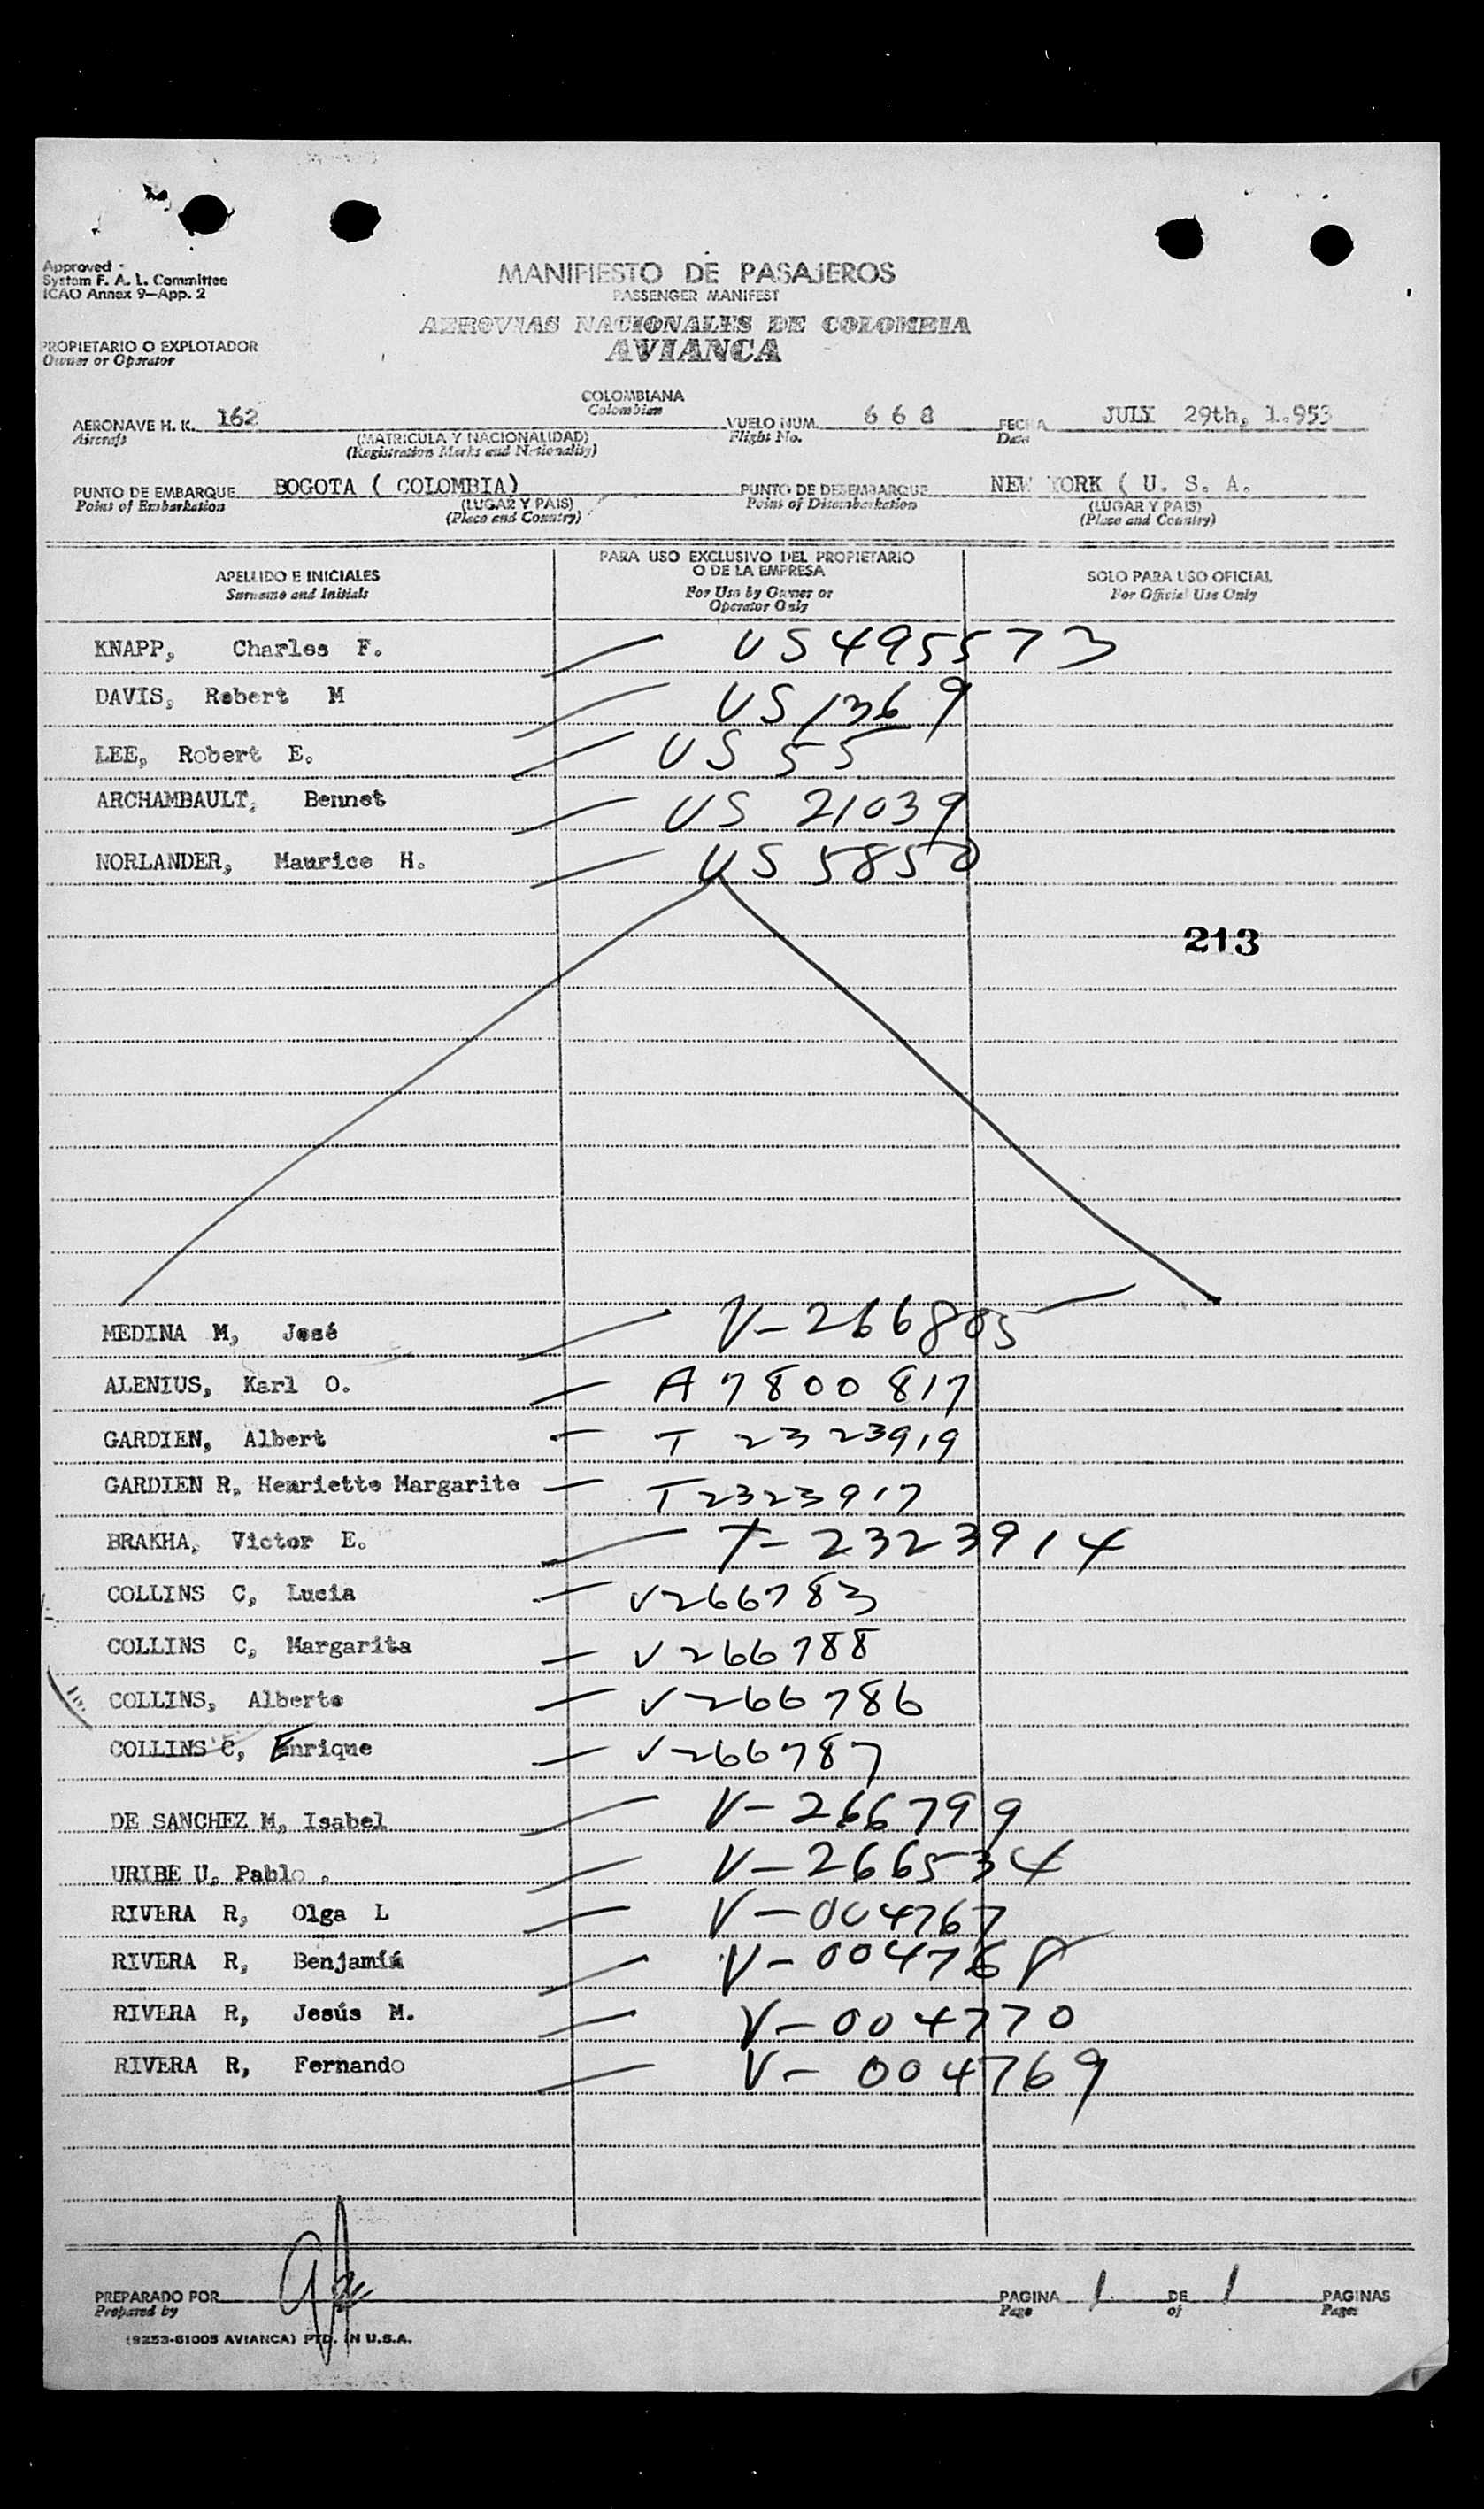 Approved
System F. A. L. Committee
ICAO Annex 9—App. 2
MANIFIESTO DE PASAJEROS
PASSENGER MANIFEST
AEROVIAS NACIONALES DE COLOMBIA
AVIANCA
PROPIETARIO O EXPLOTADOR
Owner or Operator
COLOMBIANA
Colombian
AERONAVE H. K. 162 VUELO NUM. 6 6 8 FECHA JULY 29th, 1.953
Aircraft (MATRICULA Y NACIONALIDAD) Flight No. Date
(Registration Marks and Nationality)
PUNTO DE EMBARQUE BOGOTA ( COLOMBIA) PUNTO DE DESEMBARQUE NEW YORK ( U. S. A.
Point of Embarkation (LUGAR Y PAIS) Point of Disembarkation (LUGAR Y PAIS)
(Place and Country) (Place and Country)
APELLIDO E INICIALES PARA USO EXCLUSIVO DEL PROPIETARIO O DE LA EMPRESA SOLO PARA USO OFICIAL
Surname and Initials For Use by Owner or Operator Only For Official Use Only
KNAPP, Charles F. US 495573
DAVIS, Robert M US 1369
LEE, Robert E. US 55
ARCHAMBAULT, Bennet US 21039
NORLANDER, Maurice H. US 5850
213
MEDINA M, José V-266805
ALENIUS, Karl O. A7800817
GARDIEN, Albert T 2323919
GARDIEN R, Henriette Margarite T2323917
BRAKHA, Victor E. T-2323914
COLLINS C, Lucia V266783
COLLINS C, Margarita V266788
COLLINS, Alberto V266786
COLLINS C, Enrique V266787
DE SANCHEZ M, Isabel V-266799
URIBE U, Pablo . V-266534
RIVERA R, Olga L V-004767
RIVERA R, Benjamín V-004768
RIVERA R, Jesús M. V-004770
RIVERA R, Fernando V-004769
PREPARADO POR PAGINA 1 DE 1 PAGINAS
Prepared by Page of Pages
(9253-61005 AVIANCA) PTD. IN U.S.A.